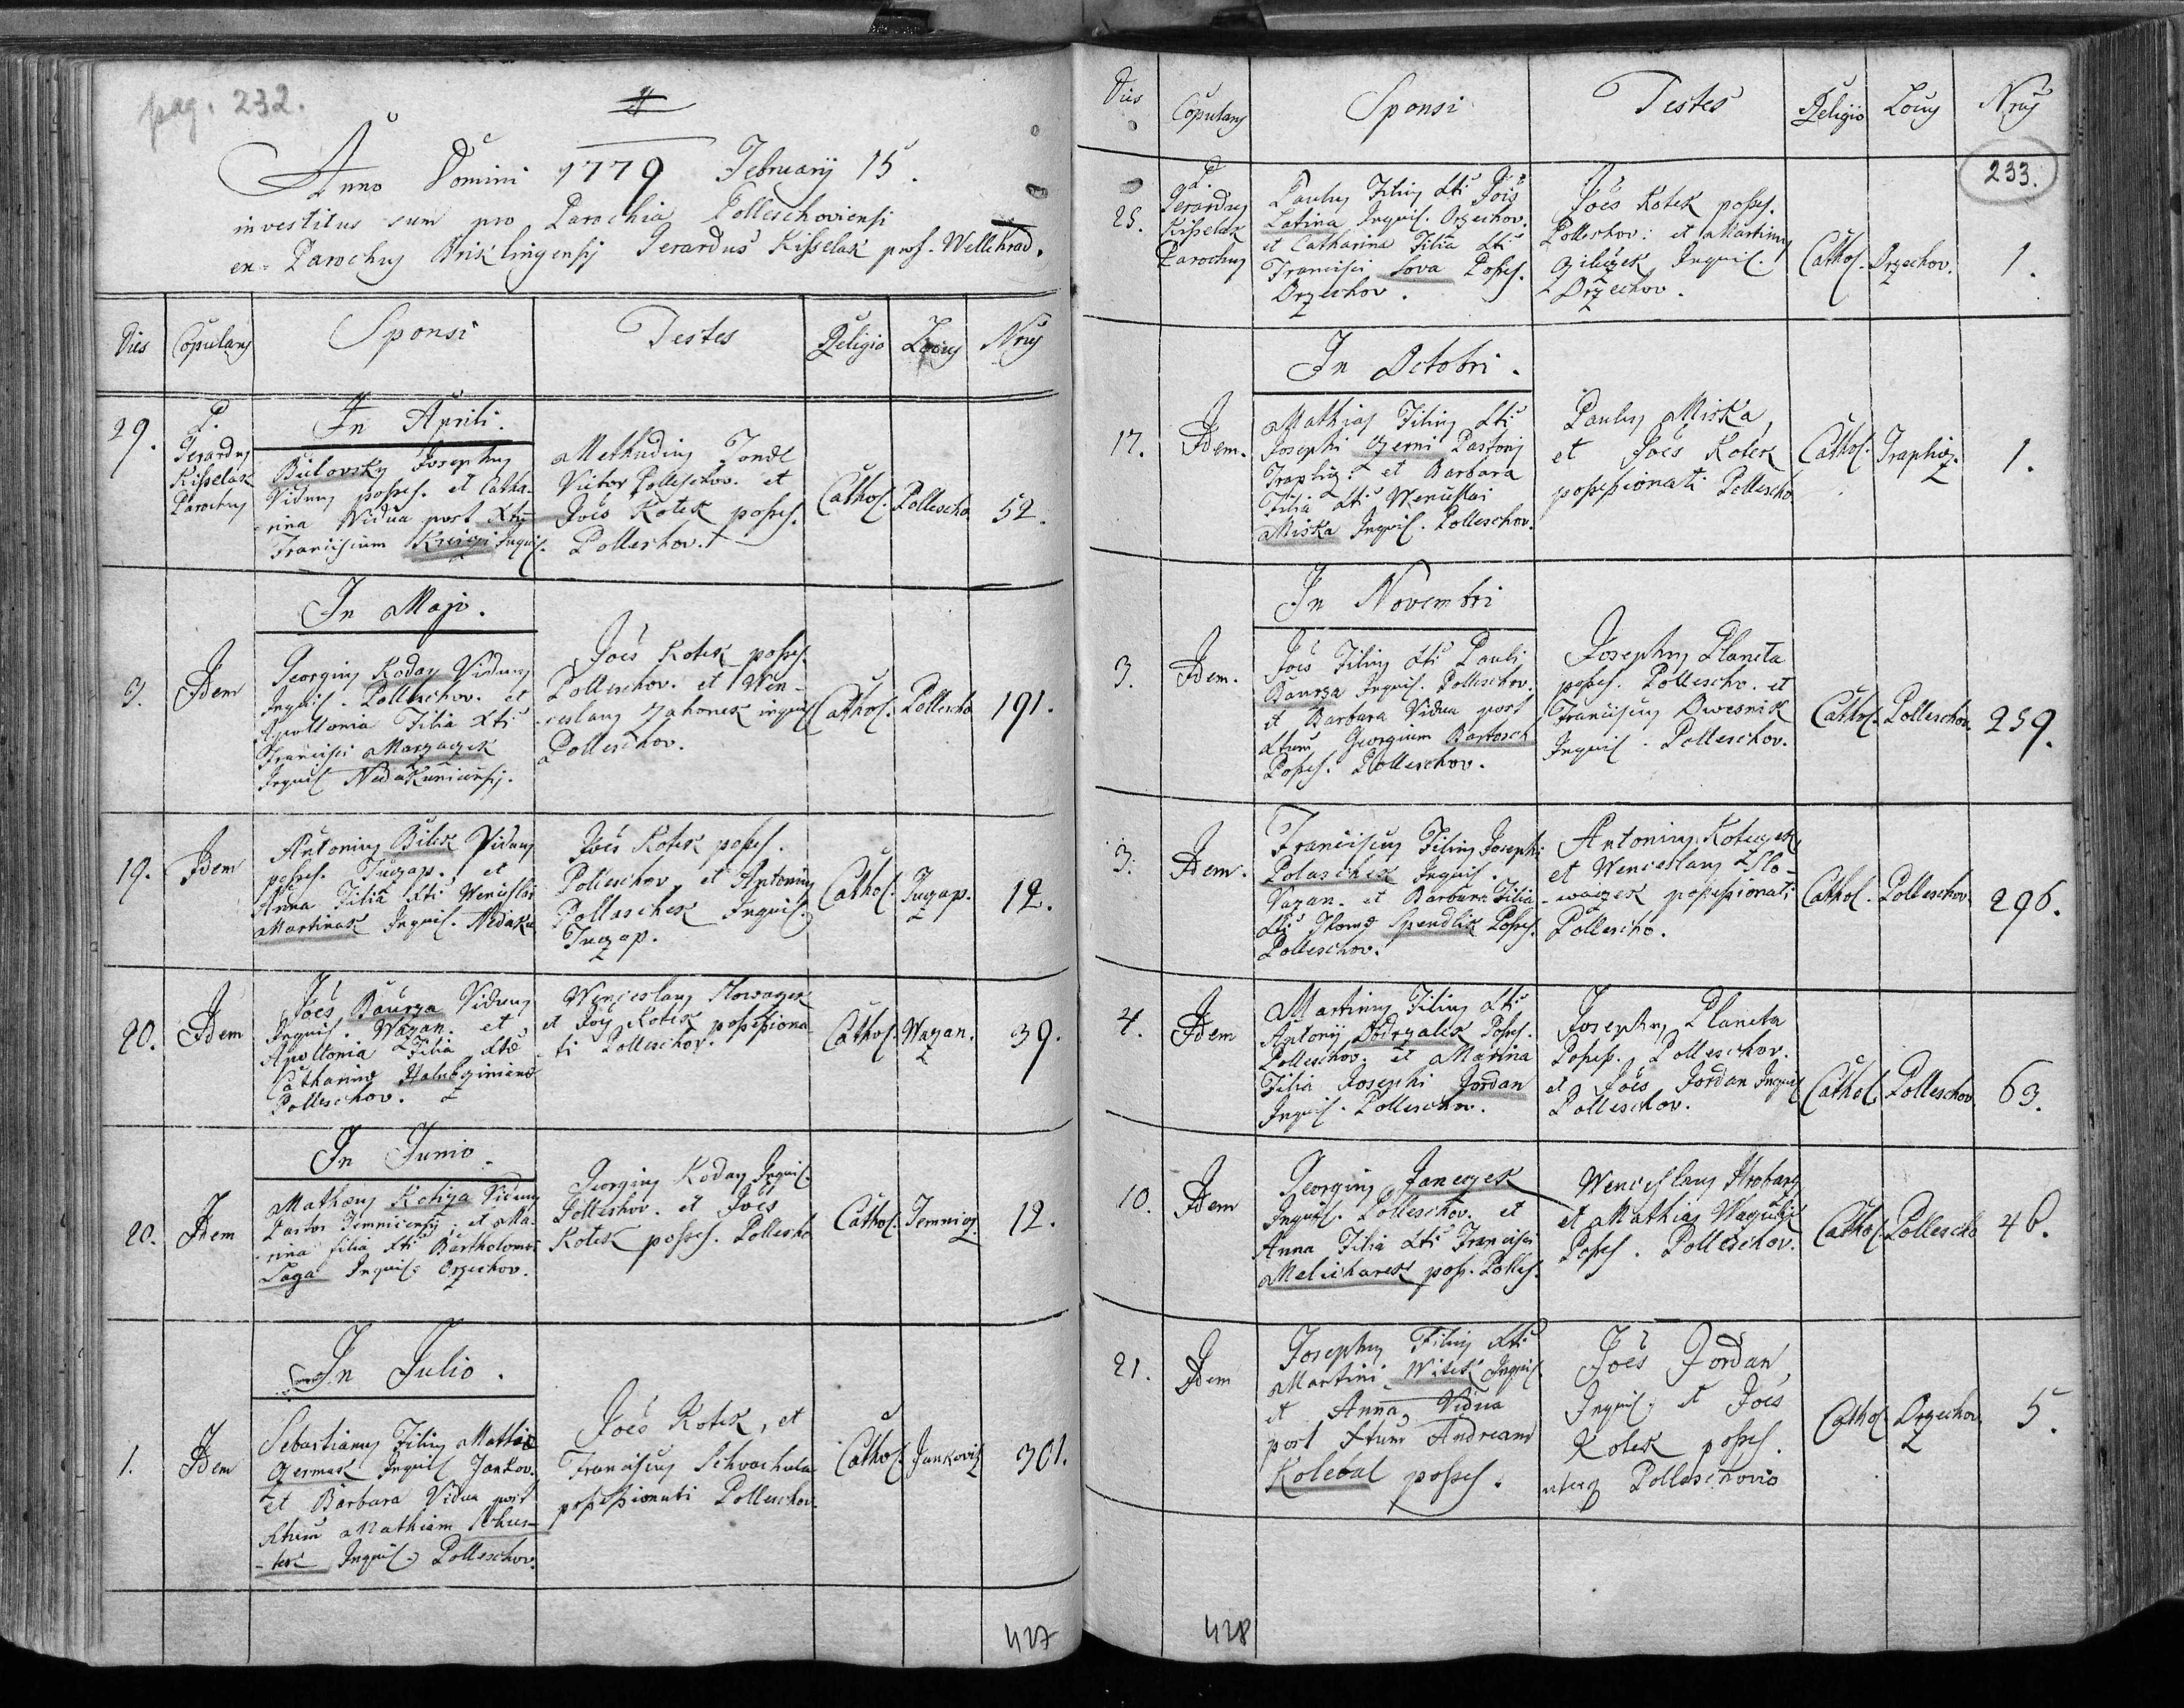 pag. 232.
Anno Domini 1779 Februarij 15.
investitus sum pro Parochia Polleschoviensi
ex-Parochus Prislingensis Gerardus Kisselak prof. Wellehrad.
Dies Copulans Sponsi Testes Religio Locus Nrus
In Aprili.
29.
P.
Gerardus
Kisselak
Parochus
Bilovsky Josephus
Viduus posses. et Catha-
rina Vidua post
Franciscum Inquil.
Methudius
Victor Polleschov. et
Joes Kotek posses.
Polleschov.
Cathol.
Pollescho
52.
In Majo.
9.
Idem
Georgius Koday Viduus
Inquil. Polleschov. et
Apollonia Filia
Francisci
Inquil
Joes Kotek posses.
Polleschov. et Wen-
ceslaus Zahorek inquil
Polleschov.
Cathol.
Pollescho
191.
19.
Idem
Antonius Bilek Viduus
posses. et
Anna Filia Wenceslai
Martinak Inquil. Nedaku
Joes Kotek posses.
Polleschov et Antonius
Pollaschek Inquil.
Cathol.
12.
20.
Idem
Joes Baurza Viduus
Inquil. Wazan. et
Apollonia Filia
Catharinæ
Polleschov.
Wenceslaus Slowazek
et Joes Kotek possessiona-
ti Polleschov.
Cathol.
Wazan.
39.
In Junio.
20.
Idem
Mathæus Viduus
Pastor et Ma-
rina filia Bartholomei
Inquil. Orzechov.
Georgius Koday Inquil.
Polleschov. et Joes
Kotek posses. Pollescho
Cathol.
12.
In Julio.
1.
Idem
Sebastianus Filius Mathiæ
Czermak Inquil Jankov.
et Barbara Vidua post
Mathiam Schus-
-ter Inquil. Polleschov.
Joes Kotek, et
Franciscus Schvachula
possessionati Polleschov.
Cathol.
Jankovitz
301.
427
Dies Copulans Sponsi Testes Religio Locus Nrus
233.
25.
P.
Gerardus
Kisselak
Parochus
Paulus Filius Jois
Latina Inquil. Orzechov.
et Catharina Filia
Francisci Sova Posses.
Orzechov.
Joes Kotek posses.
Polleschov: et Martinus
Inquil.
Orzechov.
Cathol.
Orzechov.
1.
In Octobri.
17.
Idem.
Mathias Filius
Josephi Czerni Pastoris
et Barbara
Filia Wenceslai
Miska Inquil. Polleschov.
Paulus Miska
et Joes Kotek
possessionati Pollescho
Cathol.
1.
In Novembri
3.
Idem.
Joes Filius Pauli
Baurza Inquil. Polleschov.
et Barbara Vidua post
Georgium Bartosch
Posses. Polleschov.
Josephus Planeta
posses. Pollescho. et
Franciscus Dwesnik
Inquil. Polleschov.
Cathol.
Polleschov.
259.
3.
Idem.
Franciscus Filius Josephi
Polaschek Inquil.
Wazan. et Barbara Filia
Thomæ Spendlik Posses.
Polleschov.
Antonius
et Wenceslaus Slo-
-wazek possessionati
Pollescho.
Cathol.
Polleschov.
296.
4.
Idem
Martinus Filius
Antonij Posses.
Polleschov. et Marina
Filia Josephi Jordan
Inquil. Polleschov.
Josephus Planeta
Posses. Polleschov.
et Joes Jordan Inquil
Polleschov.
Cathol.
Polleschov
63.
10.
Idem
Georgius Janeczek
Inquil. Polleschov. et
Anna Filia Francisci
Melicharek poss. Polles.
Wenceslaus
et Mathias
Posses. Polleschov.
Cathol.
Pollescho
46.
21.
Idem
Josephus Filius
Martini Witek Inquil.
et Anna, Vidua
post Andream
Kolebal posses.
Joes Jordan
Inquil. et Joes
Kotek posses.
Polleschovio
Cathol
Orzechov.
5.
428